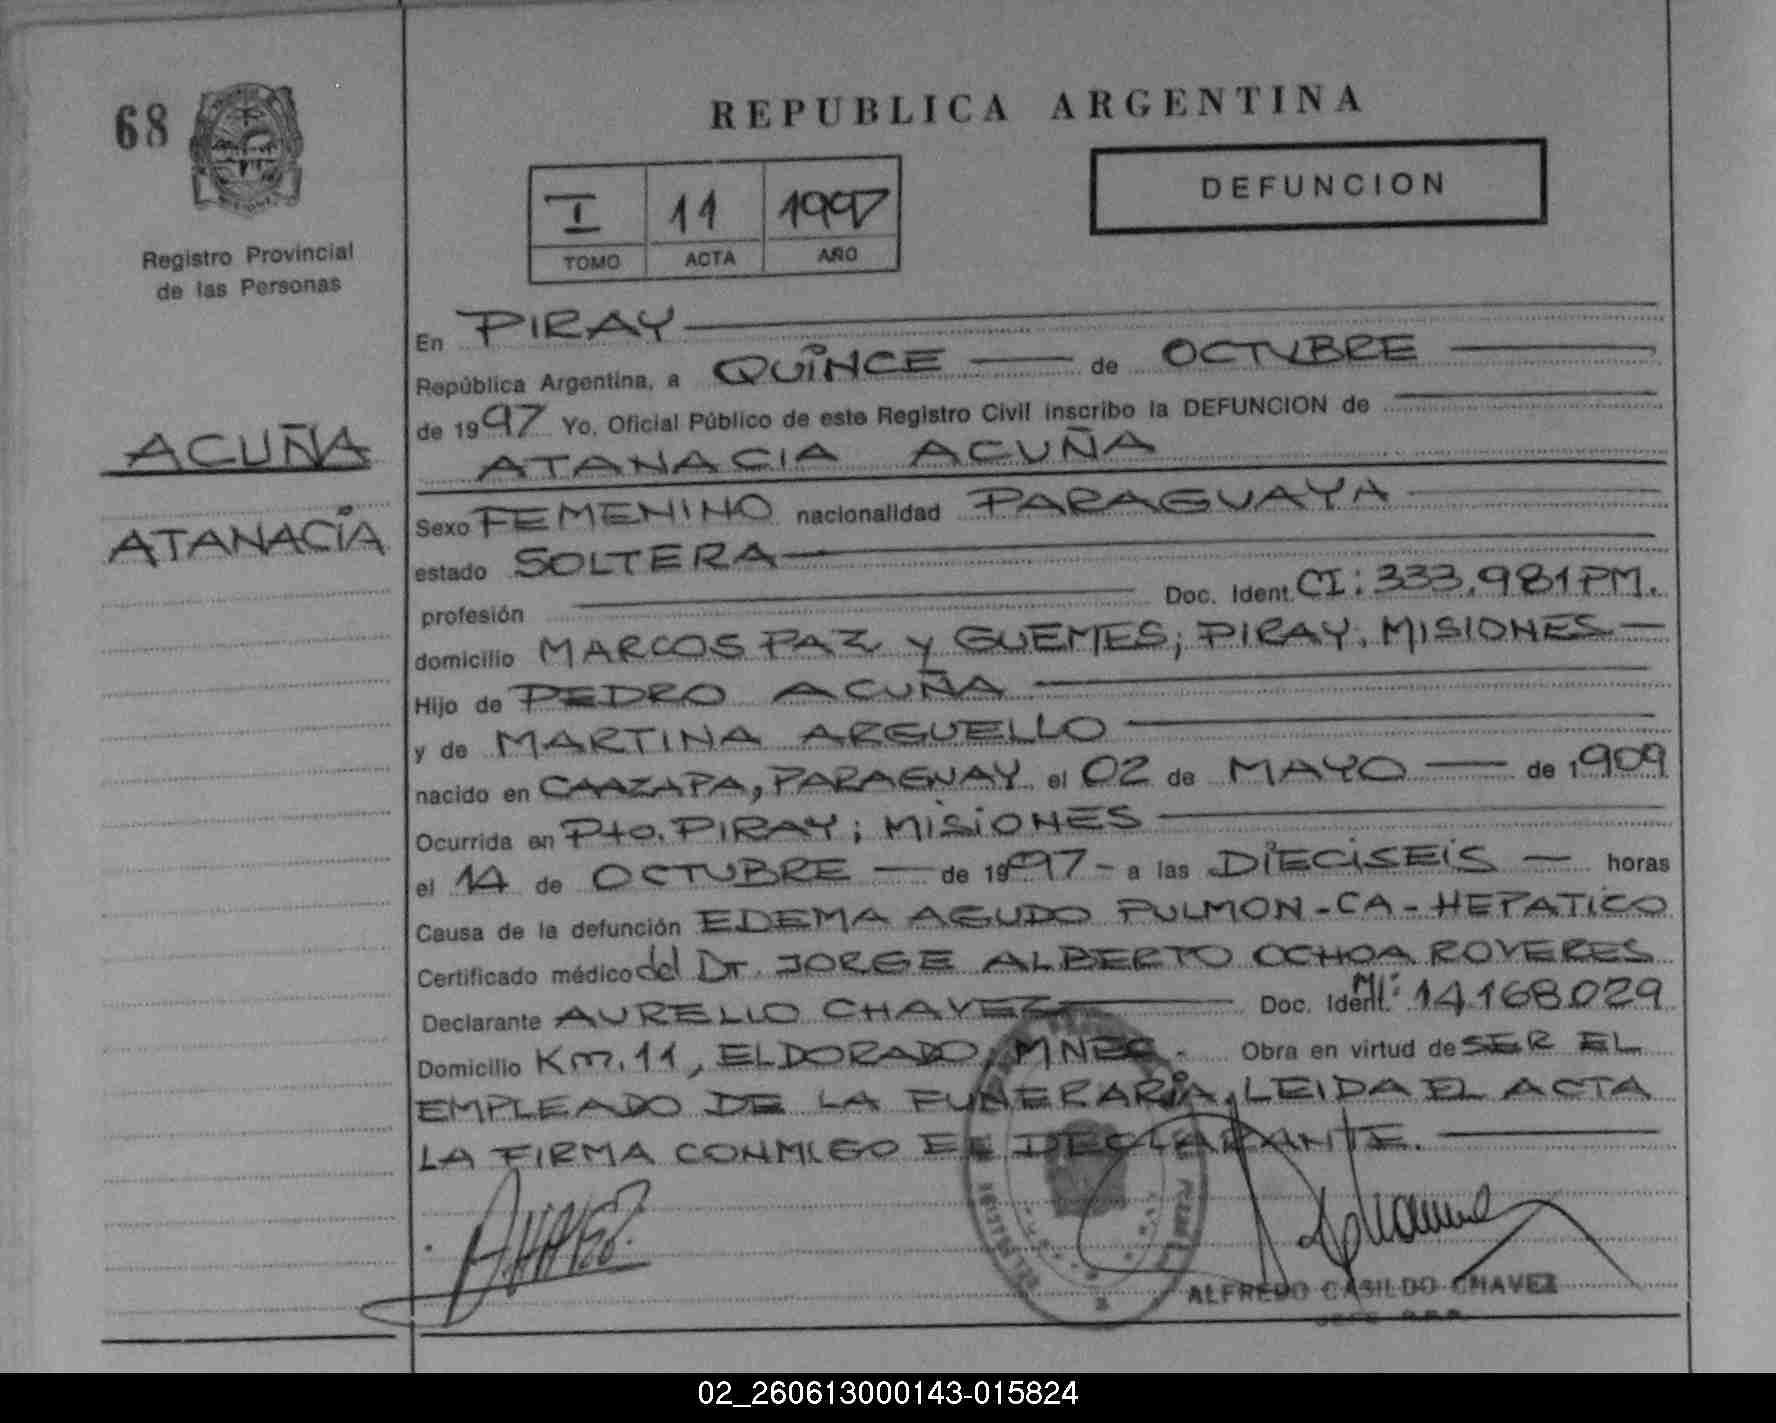 68
Registro Provincial
de las Personas
ACUÑA
ATANACIA
REPUBLICA ARGENTINA
I 11 1997
TOMO ACTA AÑO
DEFUNCION
En PIRAY
República Argentina, a QUINCE de OCTUBRE
de 1997 Yo, Oficial Público de este Registro Civil inscribo la DEFUNCION de
ATANACIA ACUÑA
Sexo FEMENINO nacionalidad PARAGUAYA
estado SOLTERA
profesión Doc. Ident. CI: 333.981 PM.
domicilio MARCOS PAZ y GUEMES; PIRAY. MISIONES
Hijo de PEDRO ACUÑA
y de MARTINA ARGUELLO
nacido en CAAZAPA, PARAGUAY el 02 de MAYO de 1909
Ocurrida en Pto. PIRAY; MISIONES
el 14 de OCTUBRE de 1997 - a las DIECISEIS horas
Causa de la defunción EDEMA AGUDO PULMON-CA-HEPATICO
Certificado médico del Dr. JORGE ALBERTO OCHOA ROVERES
Declarante AURELIO CHAVEZ Doc. Ident. MI: 14168029
Domicilio Km. 11, ELDORADO, MNES. Obra en virtud de SER EL
EMPLEADO DE LA FUNERARIA, LEIDA EL ACTA
LA FIRMA CONMIGO EL DECLARANTE.
ALFREDO CASILDO CHAVEZ
02_260613000143-015824